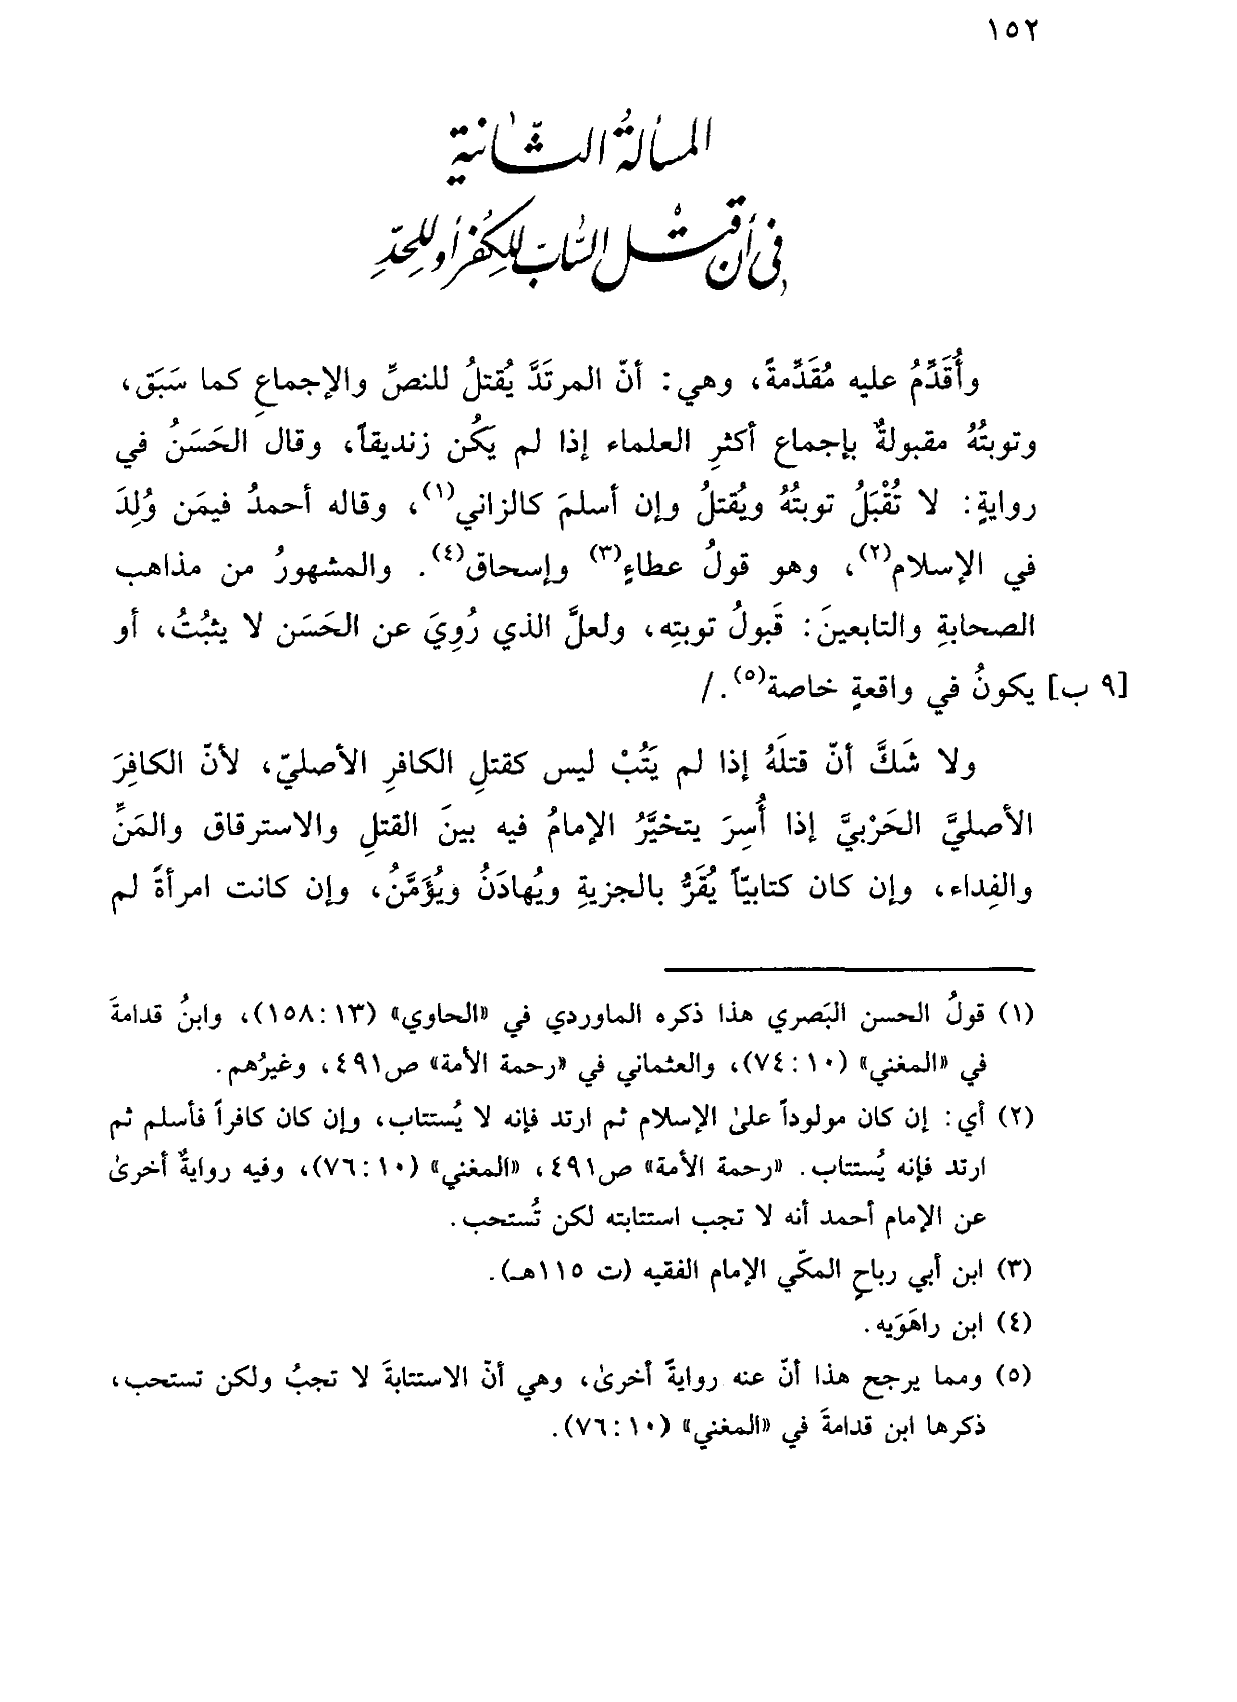 ١٥٢
المسألةُ الثّانية
في أن قتلُ السّابّ للكُفر أو للحدِّ
وأُقَدِّمُ عليه مُقَدِّمةً، وهي: أنّ المرتَدَّ يُقتلُ للنصِّ والإجماعِ كما سَبَق،
وتوبتُهُ مقبولةٌ بإجماع أكثرِ العلماء إذا لم يَكُن زنديقاً، وقال الحَسَنُ في
روايةٍ: لا تُقْبَلُ توبتُهُ ويُقتلُ وإن أسلمَ كالزاني(١)، وقاله أحمدُ فيمَن وُلِدَ
في الإسلام(٢)، وهو قولُ عطاءٍ(٣) وإسحاق(٤). والمشهورُ من مذاهب
الصحابةِ والتابعينَ: قَبولُ توبتِه، ولعلَّ الذي رُوِيَ عن الحَسَن لا يثبُتُ، أو
[٩ ب] يكونُ في واقعةٍ خاصة(٥)./
ولا شَكَّ أنّ قتلَهُ إذا لم يَتُبْ ليس كقتلِ الكافرِ الأصليّ، لأنّ الكافِرَ
الأصليَّ الحَرْبيَّ إذا أُسِرَ يتخيَّرُ الإمامُ فيه بينَ القتلِ والاسترقاق والمَنِّ
والفِداء، وإن كان كتابيّاً يُقَرُّ بالجزيةِ ويُهادَنُ ويُؤَمَّنُ، وإن كانت امرأةً لم
(١) قولُ الحسن البَصري هذا ذكره الماوردي في «الحاوي» (١٣: ١٥٨)، وابنُ قدامةَ
في «المغني» (١٠: ٧٤)، والعثماني في «رحمة الأمة» ص٤٩١، وغيرُهم.
(٢) أي: إن كان مولوداً علىٰ الإسلام ثم ارتد فإنه لا يُستتاب، وإن كان كافراً فأسلم ثم
ارتد فإنه يُستتاب. «رحمة الأمة» ص٤٩١، «المغني» (١٠: ٧٦)، وفيه روايةٌ أخرىٰ
عن الإمام أحمد أنه لا تجب استتابته لكن تُستحب.
(٣) ابن أبي رباحٍ المكّي الإمام الفقيه (ت ١١٥هـ).
(٤) ابن راهَوَيه.
(٥) ومما يرجح هذا أنّ عنه روايةً أخرىٰ، وهي أنّ الاستتابةَ لا تجبُ ولكن تستحب،
ذكرها ابن قدامةَ في «المغني» (١٠: ٧٦).